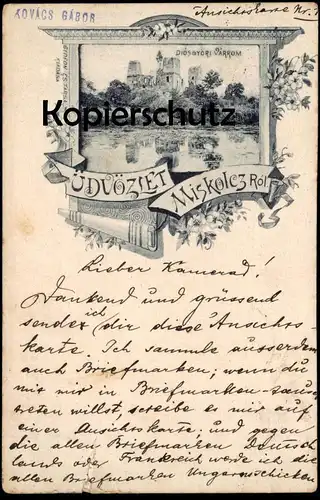 KOVÁCS GÁBOR
Ansichtskarte Nr. 1
DIÓSGYŐRI VÁRROM
Kopierschutz
ÜDVÖZLET MISKOLCZRÓL
Lieber Kamerad!
Dankend und grüssend
sende ich dir diese Ansichts-
karte. Ich sammle ausserdem
auch Briefmarken; wenn du
mit mir in Briefmarken-taus
treten willst, screibe es mir auf
einer Ansichtskarte. und gegen
die alten Briefmarken Deutsch
lands oder Frankreich werde ich die
alten Briefmarken Ungarns schicken